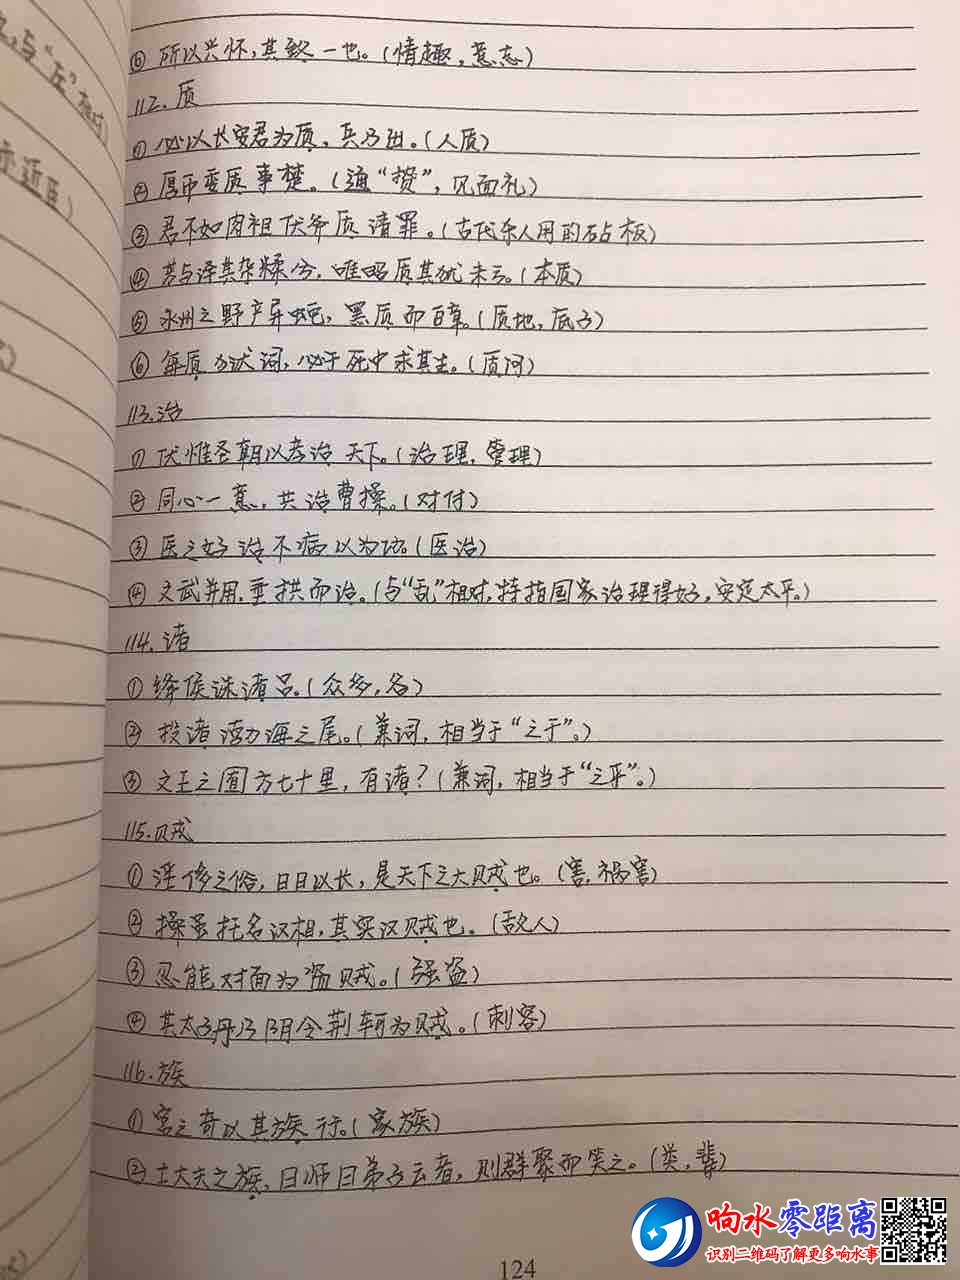 与“左”相对)
示近臣)
⑥ 所以兴怀,其致一也。(情趣,意态)
112. 质
① 必以长安君为质,兵乃出。(人质)
② 厚币委质事楚。(通“贽”,见面礼)
③ 君不如肉袒伏斧质请罪。(古代杀人用的砧板)
④ 芳与泽其杂糅兮,唯昭质其犹未亏。(本质)
⑤ 永州之野产异蛇,黑质而白章。(质地,底子)
⑥ 每质为状词,必于死中求其生。(质问)
113.治
① 伏惟圣朝以孝治天下。(治理,管理)
② 同心一意,共治曹操。(对付)
③ 医之好治不病以为功。(医治)
④ 文武并用,垂拱而治。(与“乱”相对,特指国家治理得好,安定太平。)
114.诸
① 绛侯诛诸吕。(众多,各)
② 投诸渤海之尾。(兼词,相当于“之于”。)
③ 文王之囿方七十里,有诸?(兼词,相当于“之乎”。)
115.贼
① 淫侈之俗,日日以长,是天下之大贼也。(害,祸害)
② 操虽托名汉相,其实汉贼也。(敌人)
③ 忍能对面为盗贼。(强盗)
④ 其太子丹乃阴令荆轲为贼。(刺客)
116.族
① 宫之奇以其族行。(家族)
② 士大夫之族,曰师曰弟子云者,则群聚而笑之。(类,辈)
响水零距离
识别二维码了解更多响水事
124